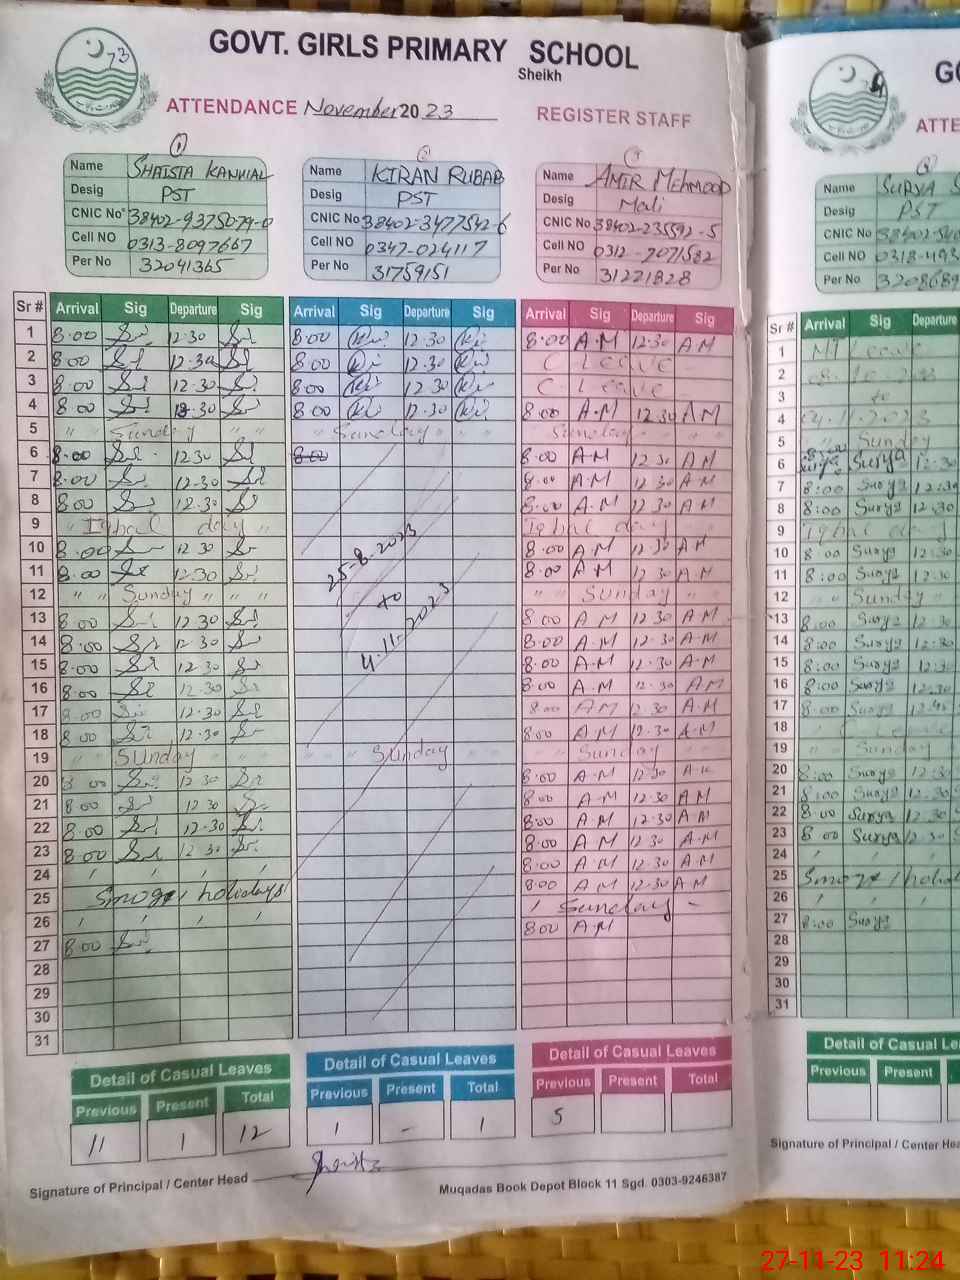 73
GOVT. GIRLS PRIMARY SCHOOL
Sheikh
ATTENDANCE November 2023
REGISTER STAFF
Name SHAISTA KANWAL
Desig PST
CNIC No 38402-9375079-0
Cell NO 0313-8097667
Per No 32041365
Name KIRAN RUBAB
Desig PST
CNIC No 38402-3477542-6
Cell NO 0347-024117
Per No 31759151
Name AMIR MEHMOOD
Desig Mali
CNIC No 38402-235592-5
Cell NO 0312-7071582
Per No 31221828
Sr # Arrival Sig Departure Sig Arrival Sig Departure Sig Arrival Sig Departure Sig
1 8:00 12:30 8:00 12:30 8:00 A.M 12:30 A M
2 8:00 12:30 8:00 12:30 C. Leave
3 8:00 12:30 8:00 12:30 C. Leave
4 8:00 12:30 8:00 12:30 8:00 A.M 12:30 A M
5 " " Sunday " " " Sunday " " " Sunday
6 8:00 12:30 8:00 8:00 A.M 12:30 A M
7 8:00 12:30 8:00 A.M 12:30 A M
8 8:00 12:30 8:00 A.M 12:30 A M
9 " Iqbal day " " Iqbal day " "
10 8:00 12:30 8:00 A M 12:30 A M
11 8:00 12:30 8:00 A M 12:30 A M
12 " " Sunday " " " " " Sunday " "
13 8:00 12:30 8:00 A M 12:30 A M
14 8:00 12:30 8:00 A.M 12:30 A.M
15 8:00 12:30 8:00 A.M 12:30 A.M
16 8:00 12:30 8:00 A.M 12:30 A M
17 8:00 12:30 8:00 A M 12:30 A.M
18 8:00 12:30 8:00 A M 12:30 A.M
19 " " Sunday " " " Sunday " " " Sunday " "
20 8:00 12:30 8:00 A.M 12:30
21 8:00 12:30 8:00 A.M 12:30 A M
22 8:00 12:30 8:00 A.M 12:30 A M
23 8:00 12:30 8:00 A.M 12:30 A.M
24 8:00 A M 12:30 A.M
25 Smog / holidays 8:00 A M 12:30 A M
26 Sunday
27 8:00 8:00 A.M
28
29
30
31
25-8-2023
to
4-11-2023
Detail of Casual Leaves
Previous Present Total
11 1 12
Detail of Casual Leaves
Previous Present Total
1 - 1
Detail of Casual Leaves
Previous Present Total
5
Signature of Principal / Center Head
Muqadas Book Depot Block 11 Sgd. 0303-9246387
ATTE
Name SURYA
Desig PST
CNIC No
Cell NO 0318-493
Per No 3208689
Sr # Arrival Sig Departure
1 Leave
2
3 to
4 04.11.2023
5 " Sunday
6 Surya 12:30
7 8:00 Surya 12:30
8 8:00 Surya 12:30
9 Iqbal day
10 8:00 Surya 12:30
11 8:00 Surya 12:30
12 " " Sunday "
13 8:00 Surya 12:30
14 8:00 Surya 12:30
15 8:00 Surya 12:30
16 8:00 Surya 12:30
17 8:00 Surya
18 Leave
19 " Sunday
20 8:00 Surya 12:30
21 8:00 Surya 12:30
22 8:00 Surya 12:30
23 8:00 Surya 12:30
24
25 Smog / holid
26
27 8:00 Surya
28
29
30
31
Detail of Casual Le
Previous Present
Signature of Principal / Center Hea
27-11-23 11:24